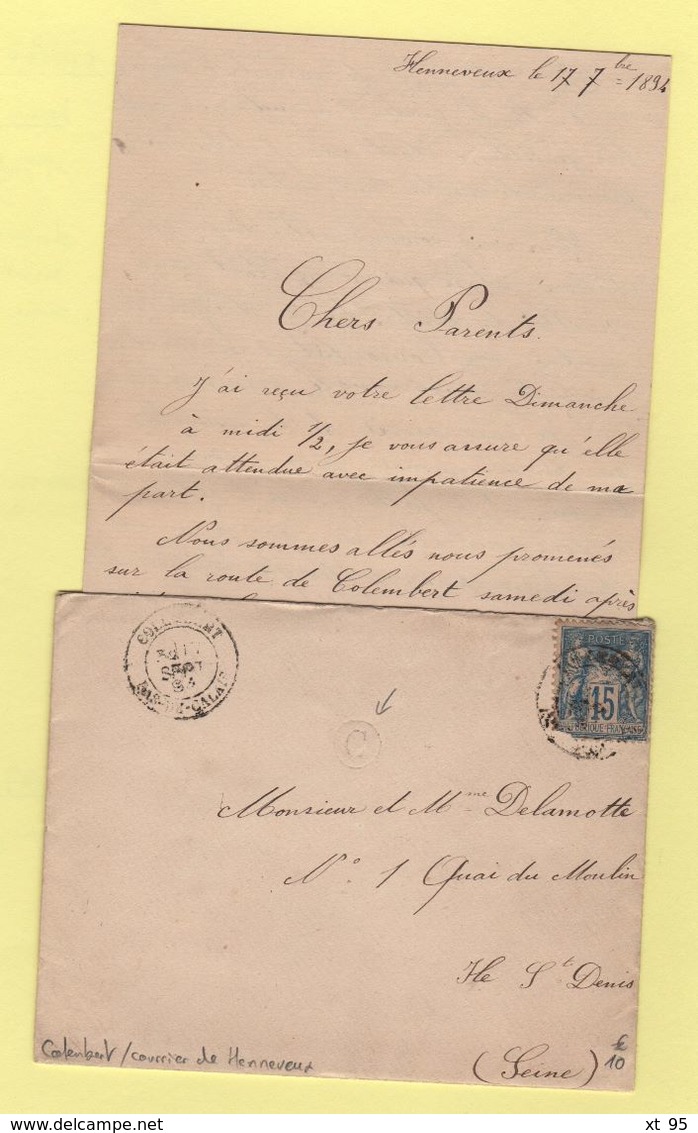 Henneveux le 17 7bre 1894
Chers Parents.
J'ai reçu votre lettre Dimanche
à midi 1/2, je vous assure qu'elle
était attendue avec impatience de ma
part.
Nous sommes allés nous promenés
sur la route de Colembert samedi après
COLEMBERT
PAS-DE-CALAIS
POSTE
15
RÉPUBLIQUE FRANÇAISE
Monsieur et Mme Delamotte
N° 1 Quai du Moulin
Ile St Denis
(Seine)
Colembert / courrier de Henneveux
€
10
xt 95